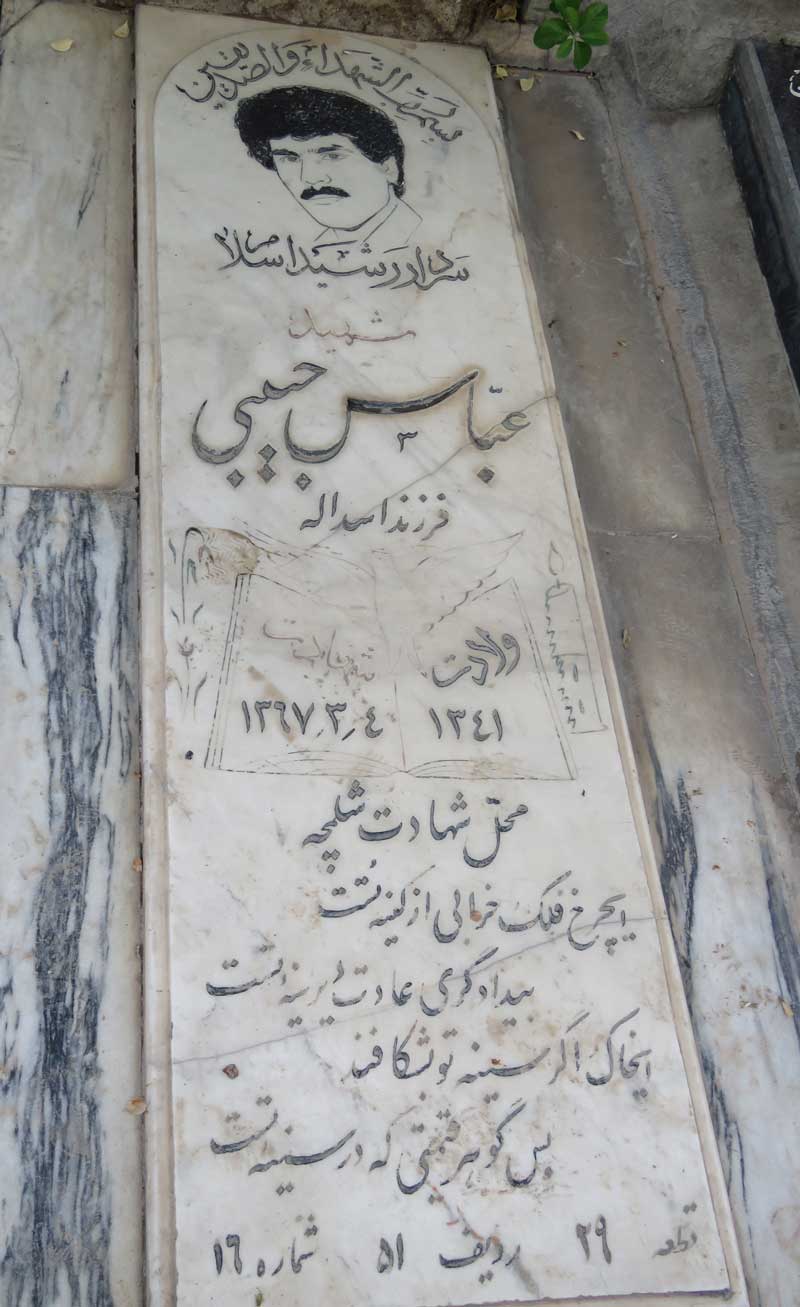 بسم رب الشهداء والصدیقین
سردار رشید اسلام
شهید
عبّاس حبیبی
فرزند اسداله
ولادت شهادت
۱۳٤۱ ٤ر۳ر۱۳۶۷
محلّ شهادت شلمچه
ایچرخ فلک خرابی از کینه تست
بیدادگری عادت دیرینه تست
ایخاک اگر سینه تو بشکافند
بس گوهر قیمتی که در سینه تست
قطعه ۲۹ ردیف ۵۱ شماره ۱۶